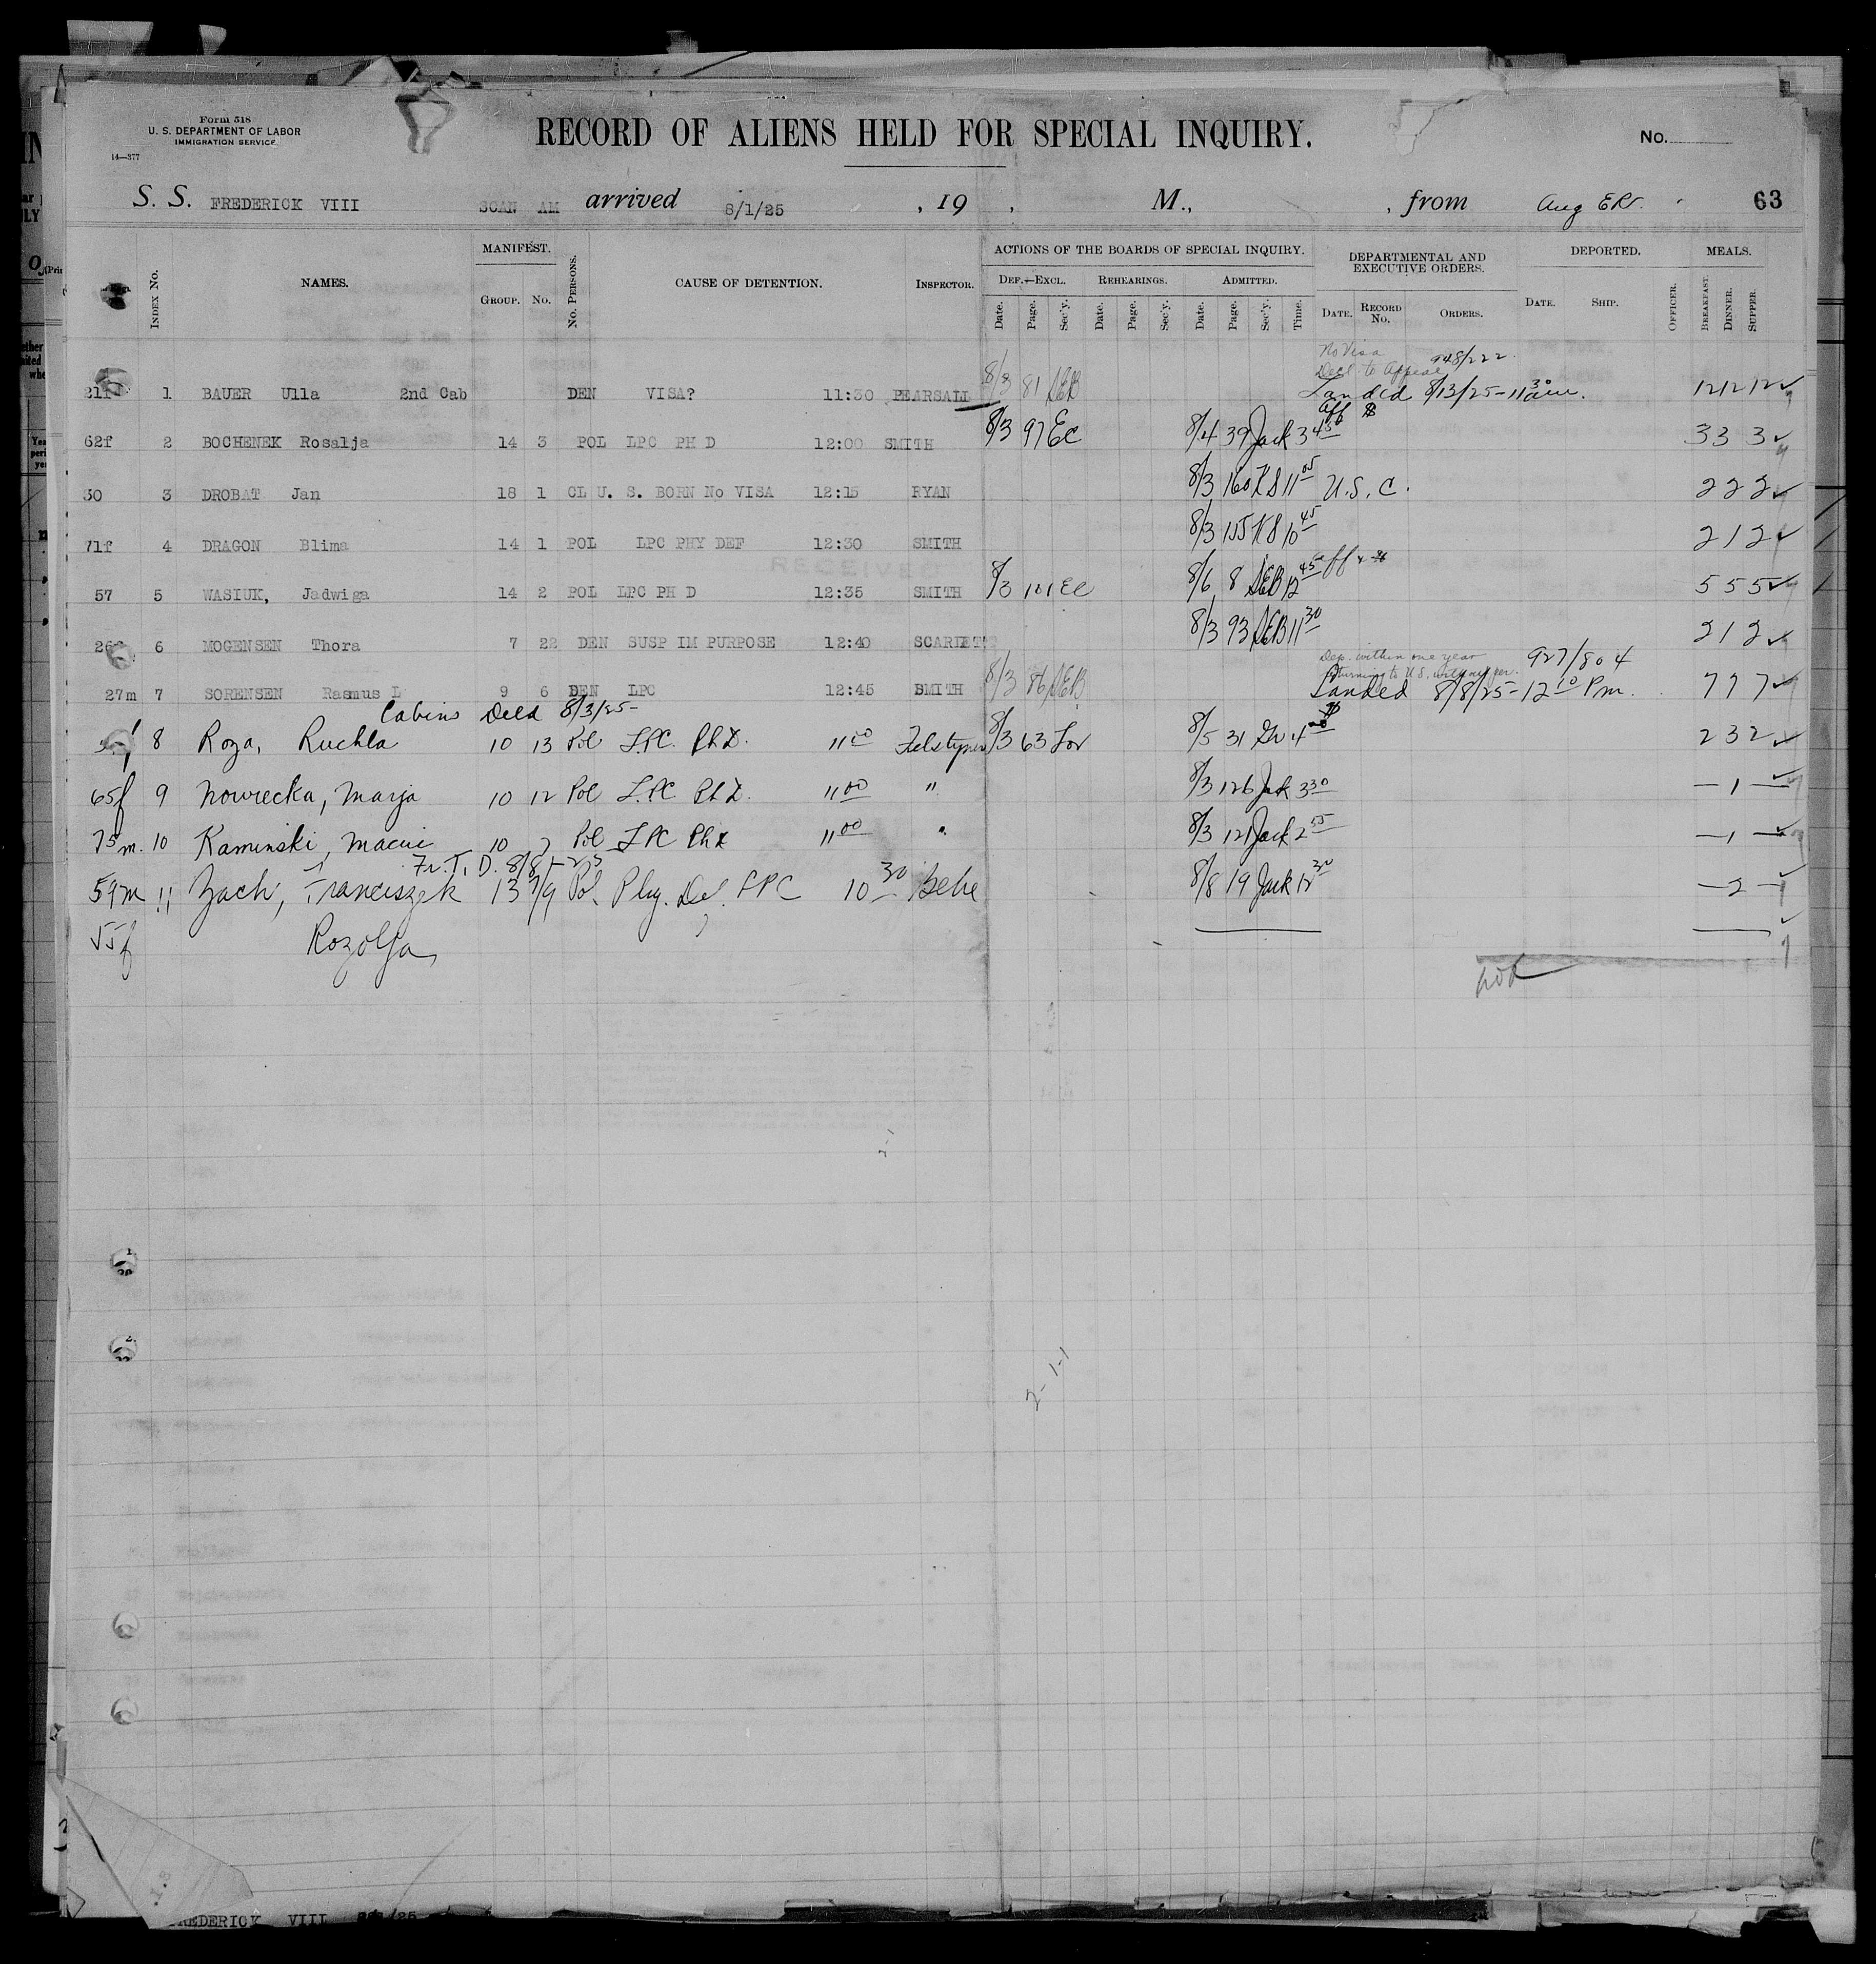 Form 518
U. S. DEPARTMENT OF LABOR
IMMIGRATION SERVICE
14—377
RECORD OF ALIENS HELD FOR SPECIAL INQUIRY.
No.
S. S. FREDERICK VIII SCAN AM arrived 8/1/25 , 19 , M., , from Aug 63
Index No. NAMES. MANIFEST. Group. No. No. Persons. CAUSE OF DETENTION. Inspector. ACTIONS OF THE BOARDS OF SPECIAL INQUIRY. Def.—Excl. Rehearings. Admitted. Date. Page. Sec'y. Date. Page. Sec'y. Date. Page. Sec'y. Time. DEPARTMENTAL AND EXECUTIVE ORDERS. Date. Record No. Orders. DEPORTED. Date. Ship. Officer. MEALS. Breakfast. Dinner. Supper.
No Visa
Decl. to Appeal 948/222
21f 1 BAUER Ulla 2nd Cab DEN VISA? 11:30 PEARSALL 8/3 81 SEB Landed 8/13/25-11 30 am. 12 12 12 ✓
62f 2 BOCHENEK Rosalja 14 3 POL LPC PH D 12:00 SMITH 8/3 97 EC 8/4 39 Jack 3 45 Aff $ 3 3 3 ✓
30 3 DROBAT Jan 18 1 CL U. S. BORN No VISA 12:15 RYAN 8/3 160 KS 11 05 U.S.C. 2 2 2 ✓
71f 4 DRAGON Blima 14 1 POL LPC PHY DEF 12:30 SMITH 8/3 155 KS 10 45 2 1 2 ✓
RECEIVED
57 5 WASIUK, Jadwiga 14 2 POL LPC PH D 12:35 SMITH 8/3 101 EC 8/6 8 SEB 12 45 5 5 5 ✓
26f 6 MOGENSEN Thora 7 22 DEN SUSP IM PURPOSE 12:40 SCARLETT 8/3 93 SEB 11 30 2 1 2 ✓
Dep. within one year 927/804
27m 7 SORENSEN Rasmus L 9 6 DEN LPC 12:45 SMITH 8/3 86 SEB Landed 8/8/25-12 10 Pm. 7 7 7 ✓
Cabins Held 8/3/25
8 Roza, Ruchla 10 13 Pol L.P.C. Ph D. 11 00 8/3 63 8/5 31 2 3 2 ✓
65f 9 Nowrecka, Marja 10 12 Pol L.P.C. Ph D. 11 00 " 8/3 126 Jack 3 30 — 1 — ✓
75m. 10 Kaminski, 10 7 Pol LPC Ph D 11 00 " 8/3 121 Jack 2 55 — 1 — ✓
Fr. T. D. 8/8/25
59m 11 Zach, Franciszek 13 Pol. Phy. Def. LPC 10 30 8/8 19 Jack 12 30 — 2 — ✓
55f Rozolja
2-1-1
FREDERICK VIII